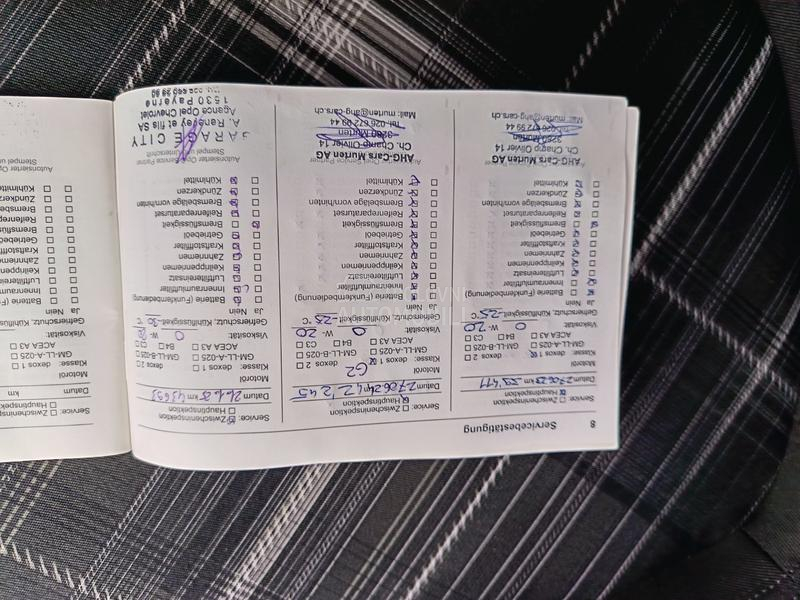 8
Servicebestätigung
Service: Zwischeninspektion
Hauptinspektion
Datum km
Motoröl
Klasse: dexos 1 dexos 2
GM-LL-A-025 GM-LL-B-025
ACEA A3 B4 C3
Viskosität: 0 W- 20
Gefrierschutz, Kühlflüssigkeit -25 °C
Ja Nein
Batterie (Funkfernbedienung)
Innenraumluftfilter
Luftfiltereinsatz
Keilrippenriemen
Zahnriemen
Kraftstofffilter
Getriebeöl
Bremsflüssigkeit
Reifenreparaturset
Bremsbeläge vorn/hinten
Zündkerzen
Kühlmittel
AHG-Cars Murten AG
Ch. Champ Olivier 14
3280 Murten
Tel. 026 672 99 44
Mail: murten@ahg-cars.ch
Service: Zwischeninspektion
Hauptinspektion
Datum km
Motoröl G2
Klasse: dexos 1 dexos 2
GM-LL-A-025 GM-LL-B-025
ACEA A3 B4 C3
Viskosität: 0 W- 20
Gefrierschutz, Kühlflüssigkeit -25 °C
Ja Nein
Batterie (Funkfernbedienung)
Innenraumluftfilter
Luftfiltereinsatz
Keilrippenriemen
Zahnriemen
Kraftstofffilter
Getriebeöl
Bremsflüssigkeit
Reifenreparaturset
Bremsbeläge vorn/hinten
Zündkerzen
Kühlmittel
AHG-Cars Murten AG
Ch. Champ-Olivier 14
3280 Murten
Tel. 026 672 99 44
Mail: murten@ahg-cars.ch
Service: Zwischeninspektion
Hauptinspektion
Datum km
Motoröl
Klasse: dexos 1 dexos 2
GM-LL-A-025 GM-LL-B-025
ACEA A3 B4 C3
Viskosität: 0 W-
Gefrierschutz, Kühlflüssigkeit -30 °C
Ja Nein
Batterie (Funkfernbedienung)
Innenraumluftfilter
Luftfiltereinsatz
Keilrippenriemen
Zahnriemen
Kraftstofffilter
Getriebeöl
Bremsflüssigkeit
Reifenreparaturset
Bremsbeläge vorn/hinten
Zündkerzen
Kühlmittel
Autorisierter Opel Service Partner
Stempel und Unterschrift
GARAGE CITY
A. Ransvey et fils SA
Agence Opel Chevrolet
1530 Payerne
Service: Zwischeninsp
Hauptinspek
Datum km
Motoröl
Klasse: dexos 1
GM-LL-A-025
ACEA A3
Viskosität:
Gefrierschutz, Kühlflüss
Ja Nein
Batterie (Fun
Innenraum
Luftfilterein
Keilrippen
Zahnriem
Kraftstoff
Getriebeö
Bremsflüs
Reifenrep
Bremsbe
Zündkerz
Kühlmitt
Autorisierter Op
Stempel un